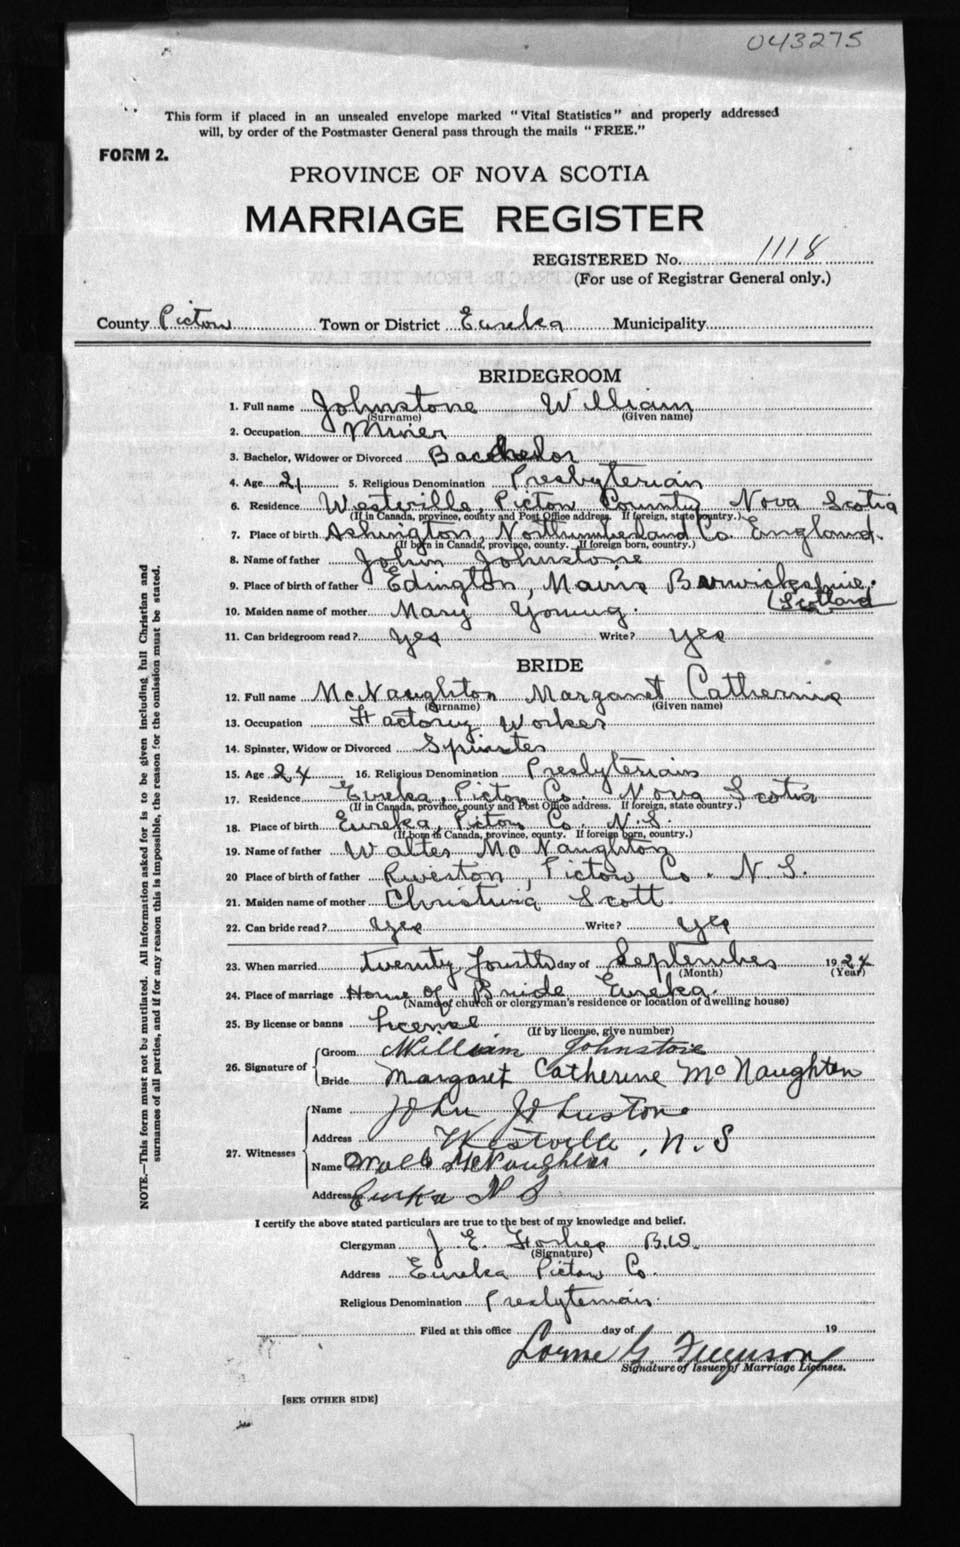 043275
This form if placed in an unsealed envelope marked "Vital Statistics" and properly addressed
will, by order of the Postmaster General pass through the mails "FREE."
FORM 2.
PROVINCE OF NOVA SCOTIA
MARRIAGE REGISTER
REGISTERED No. 1118
(For use of Registrar General only.)
County Pictou Town or District Eureka Municipality
BRIDEGROOM
1. Full name Johnstone William
(Surname) (Given name)
2. Occupation Miner
3. Bachelor, Widower or Divorced Bachelor
4. Age 21 5. Religious Denomination Presbyterian
6. Residence Westville, Pictou County Nova Scotia
(If in Canada, province, county and Post Office address. If foreign, state country.)
7. Place of birth Ashington, Northumberland Co. England.
(If born in Canada, province, county. If foreign born, country.)
8. Name of father John Johnstone
9. Place of birth of father Edington, Mains Berwickshire.
(Scotland
10. Maiden name of mother Mary Young.
11. Can bridegroom read? Yes Write? Yes
BRIDE
12. Full name McNaughton Margaret Catherine
(Surname) (Given name)
13. Occupation Factory Worker
14. Spinster, Widow or Divorced Spinster
15. Age 24 16. Religious Denomination Presbyterian
17. Residence Eureka, Pictou Co. Nova Scotia
(If in Canada, province, county and Post Office address. If foreign, state country.)
18. Place of birth Eureka, Pictou Co. N.S.
(If born in Canada, province, county. If foreign born, country.)
19. Name of father Walter McNaughton
20 Place of birth of father Riverton, Pictou Co. N.S.
21. Maiden name of mother Christina Scott
22. Can bride read? Yes Write? Yes
23. When married twenty fourth day of September 1924
(Month) (Year)
24. Place of marriage Home of Bride Eureka.
(Name of church or clergyman's residence or location of dwelling house)
25. By license or banns License
(If by license, give number)
26. Signature of Groom William Johnstone
Bride Margaret Catherine McNaughton
27. Witnesses Name John Johnstone
Address Westville, N.S
Name McNaughton
Address Eureka N S
I certify the above stated particulars are true to the best of my knowledge and belief.
Clergyman J. E. Forbes B.D.
(Signature)
Address Eureka Pictou Co.
Religious Denomination Presbyterian.
Filed at this office day of 19
Lorne G Ferguson
Signature of Issuer of Marriage Licenses.
[SEE OTHER SIDE]
NOTE.—This form must not be mutilated. All information asked for is to be given including full Christian and
surnames of all parties, and if for any reason this is impossible, the reason for the omission must be stated.